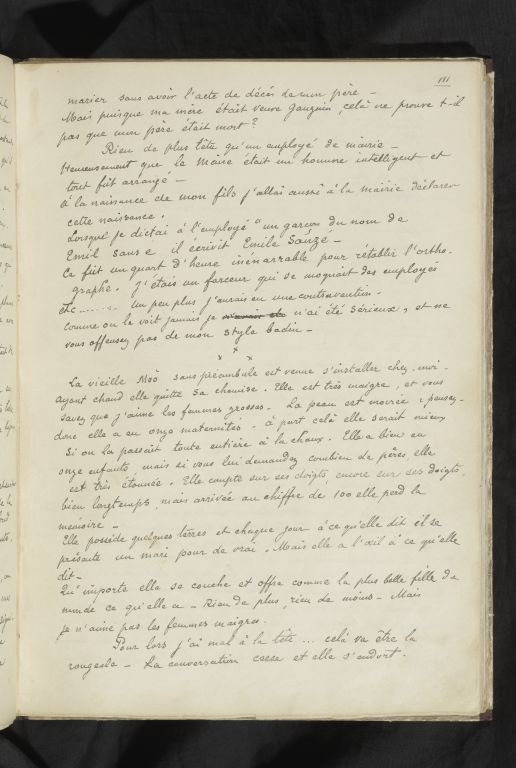 111
marier sans avoir l'acte de décés de mon père —
Mais puisque ma mère était veuve Gauguin, celà ne prouve t-il
pas que mon père était mort?
Rien de plus tête qu'un employé de mairie —
Heureusement que le Maire était un homme intelligent et
tout fût arrangé —
à la naisance de mon fils j'allai aussi à la mairie déclarer
cette naissance.
Lorsque je dictai à l'employé "un garçon du nom de
Emil sans e il écrivit Emile Sanzé —
Ce fût un quart d'heure inénarrable pour rétablir l'ortho-
graphe. J'étais un farceur qui se moquait des employés
etc....... Un peu plus j'aurais eu une contravention.
Comme on le voit jamais je n'ai été sérieux, et ne
vous offensez pas de mon style badin —
x x x
La vieille Moò sans préambule est venue s'installer chez-moi.
Ayant chaud elle quitte sa chemise. Elle est très maigre, et vous
savez que j'aime les femmes grosses. La peau est moirée, pensez-
donc elle a eu onze maternités. à part celà elle serait mieux
si on la passait toute entière à la chaux. Elle a bien eu
onze enfants, mais si vous lui demandez combien de pères, elle
est très étonnée. Elle compte sur ses doigts, encore sur ses doigts,
bien longtemps, mais arrivée au chiffre de 100 elle perd la
mémoire —
Elle possède quelques terres et chaque jour à ce qu'elle dit il se
présente un mari pour de vrai. Mais elle a l'œil à ce qu'elle
dit —
Qu'importe elle se couche et offre comme la plus belle fille du
monde ce qu'elle a — Rien de plus, rien de moins — Mais
je n'aime pas les femmes maigres.
Pour lors j'ai mal à la tête ... celà va être la
rougeole — La conversation cesse et elle s'endort.